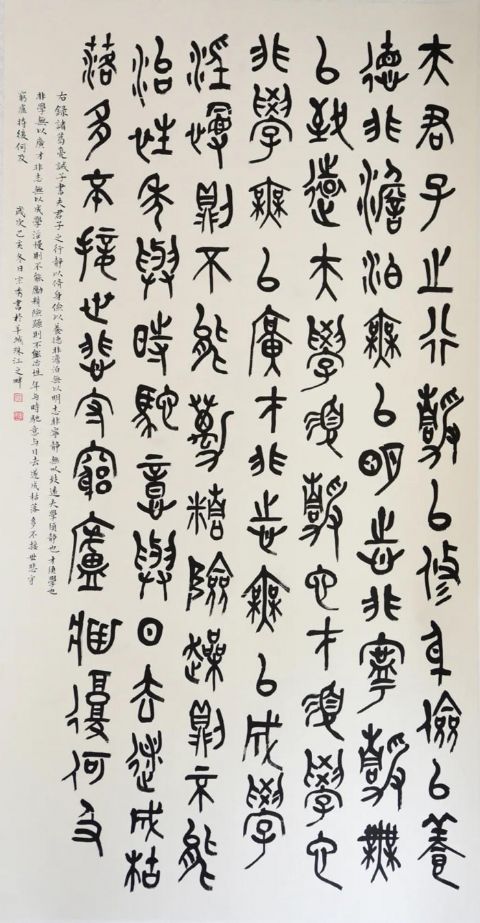 夫君子之行靜以修身儉以養
德非澹泊無以明志非寧靜無
以致遠夫學須靜也才須學也
非學無以廣才非志無以成學
淫慢則不能勵精險躁則不能
治性年與時馳意與日去遂成枯
落多不接世悲守窮廬將復何及
右錄諸葛亮誡子書夫君子之行靜以脩身儉以養德非澹泊無以明志非寧靜無以致遠夫學須靜也才須學也
非學無以廣才非志無以成學淫慢則不能勵精險躁則不能治性年与時馳意与日去遂成枯落多不接世悲守
窮廬將復何及 歲次己亥冬日書於羊城珠江之畔